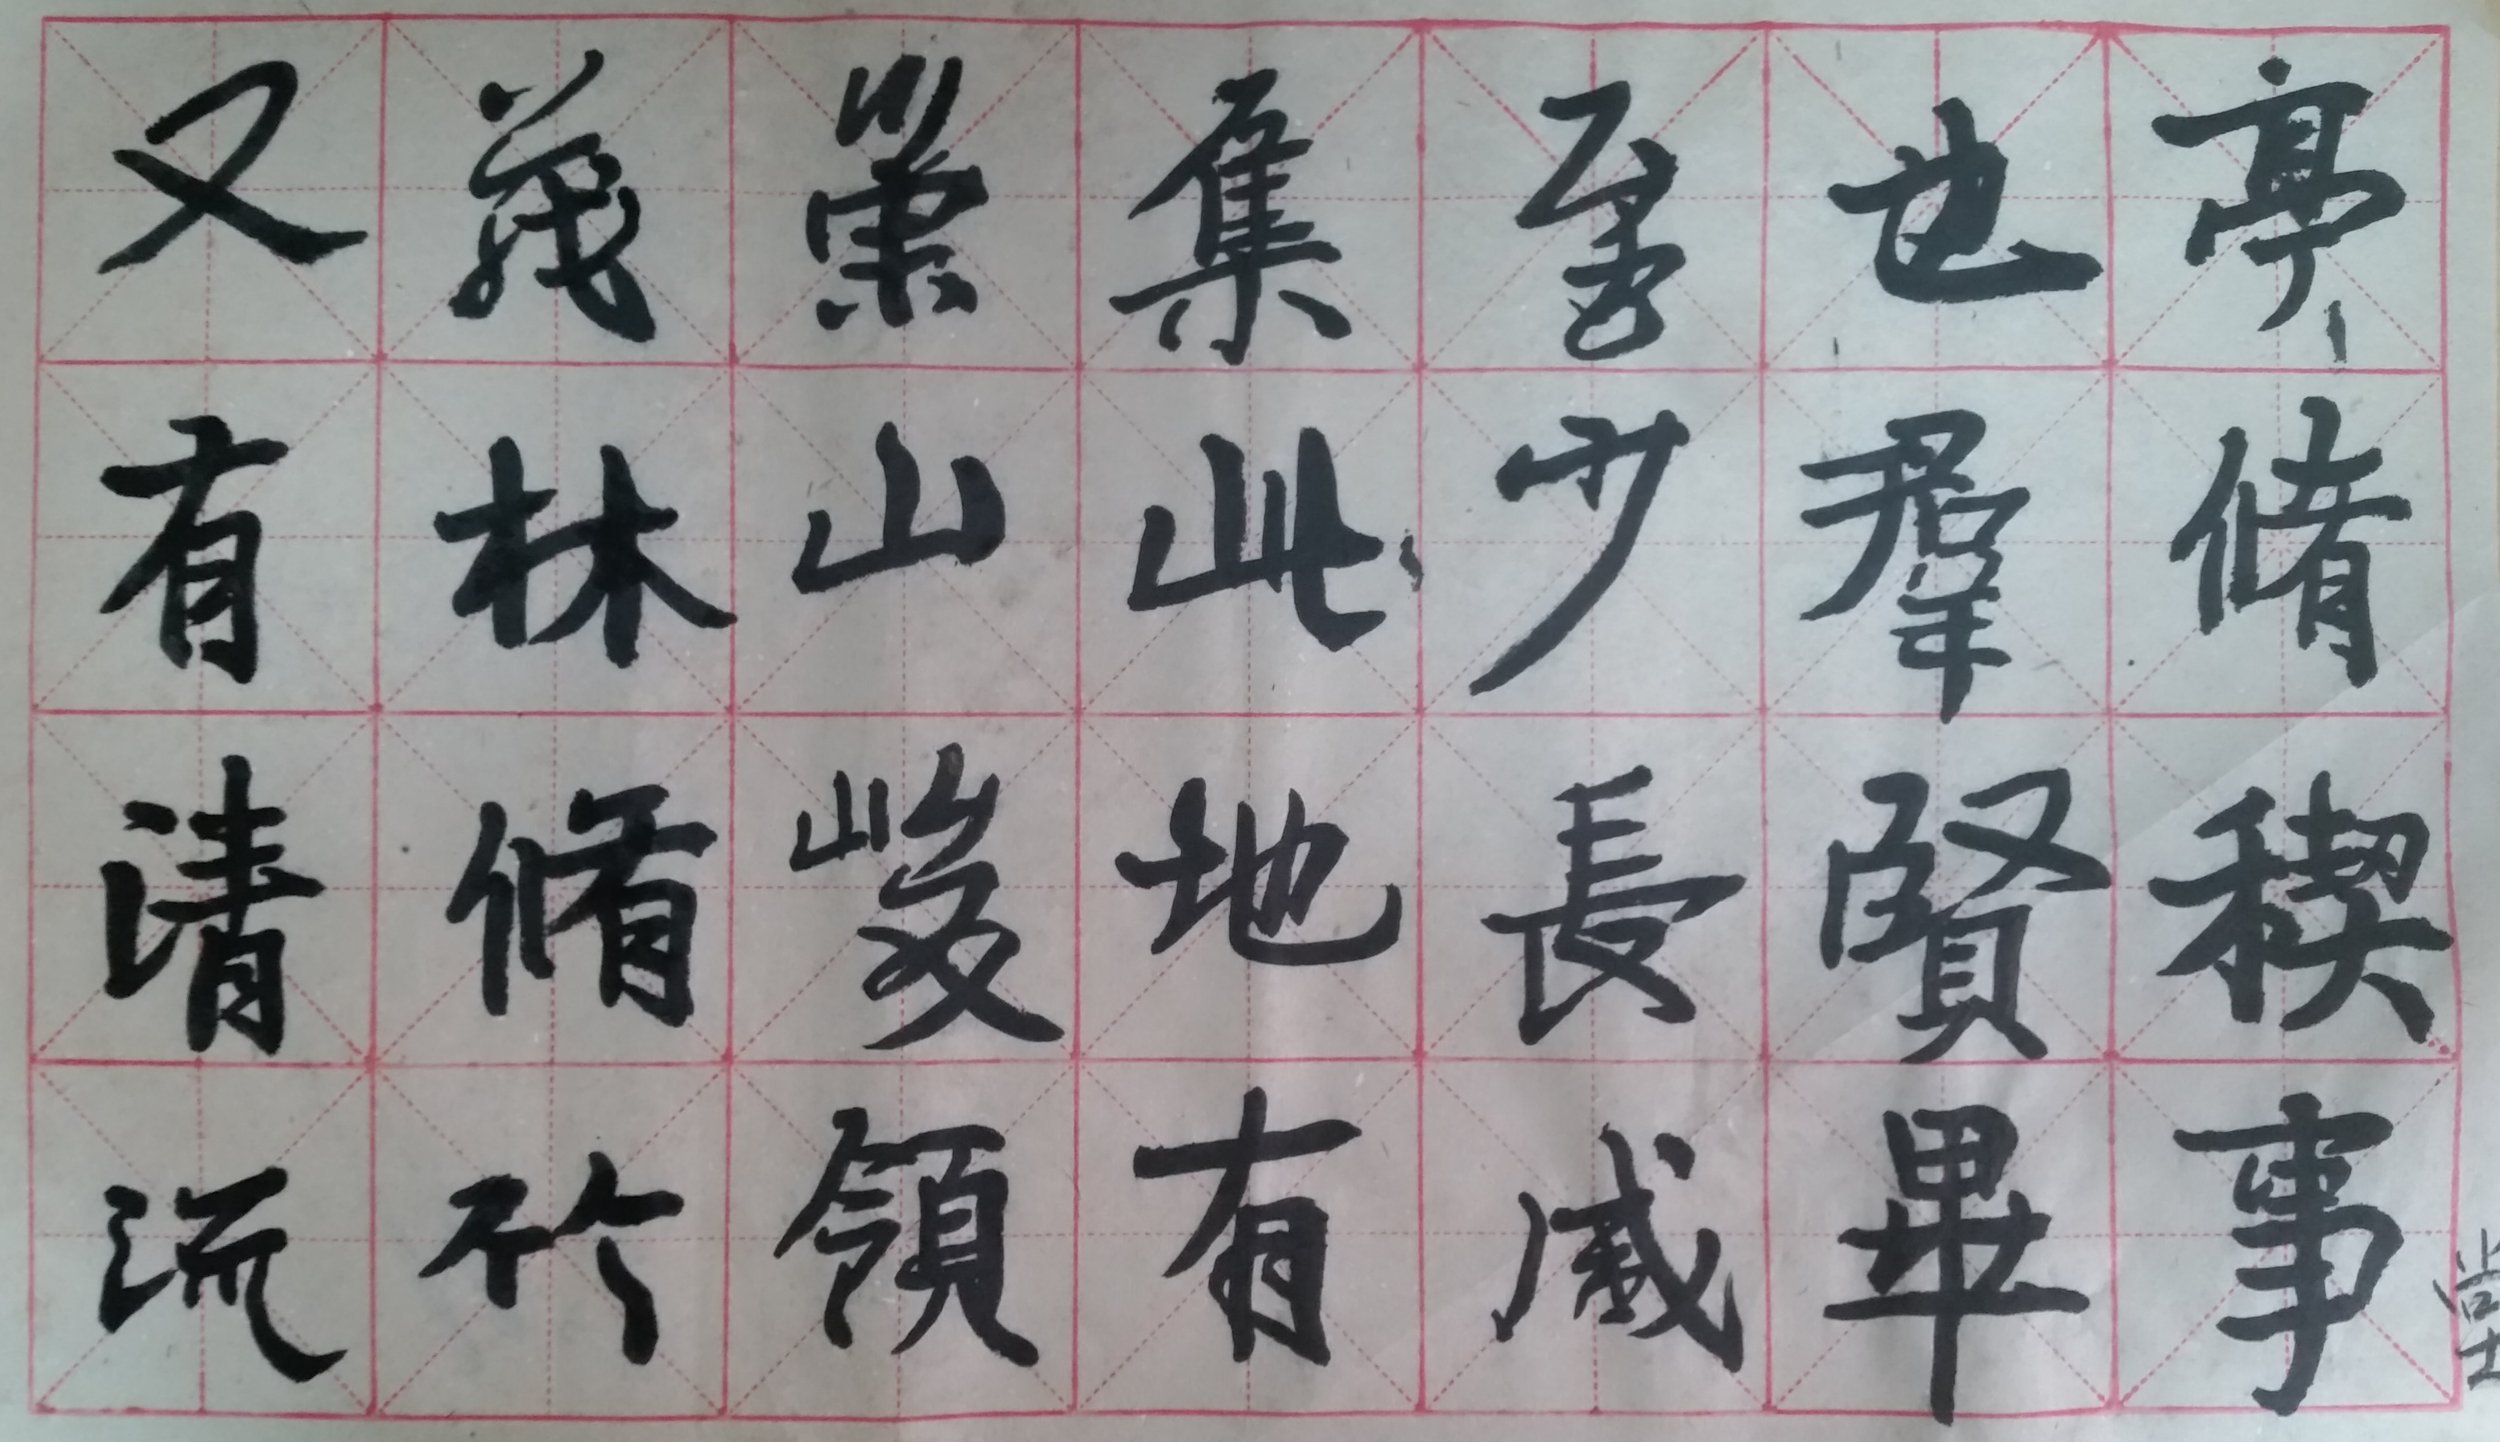 亭脩稧事
也羣賢畢
至少長咸
集此地有
崇山峻領
茂林脩竹
又有清流